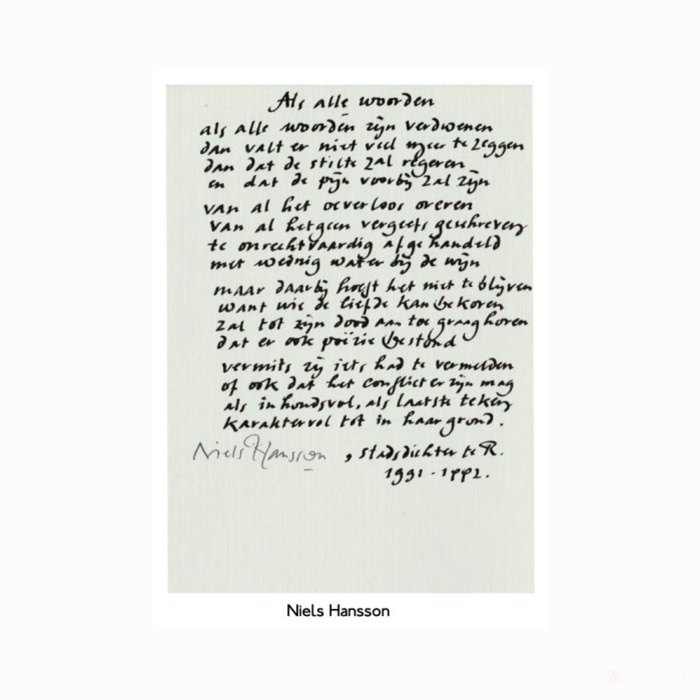 Als alle woorden
als alle woorden zijn verdwenen
dan valt er niet veel meer te zeggen
dan dat de stilte zal regeren
en dat de pijn voorbij zal zijn
van al het oeverloos oreren
van al hetgeen vergeefs geschreven
te onrechtvaardig afgehandeld
met weinig water bij de wijn
maar daarbij hoeft het niet te blijven
want wie de liefde kan bekoren
zal tot zijn dood aan toe graag horen
dat er ook poëzie bestond
vermits zij iets had te vermelden
of ook dat het conflict er zijn mag
als inhoudsvol, als laatste teken
karaktervol tot in haar grond.
Niels Hansson, stadsdichter te R.
1991-1992.
Niels Hansson